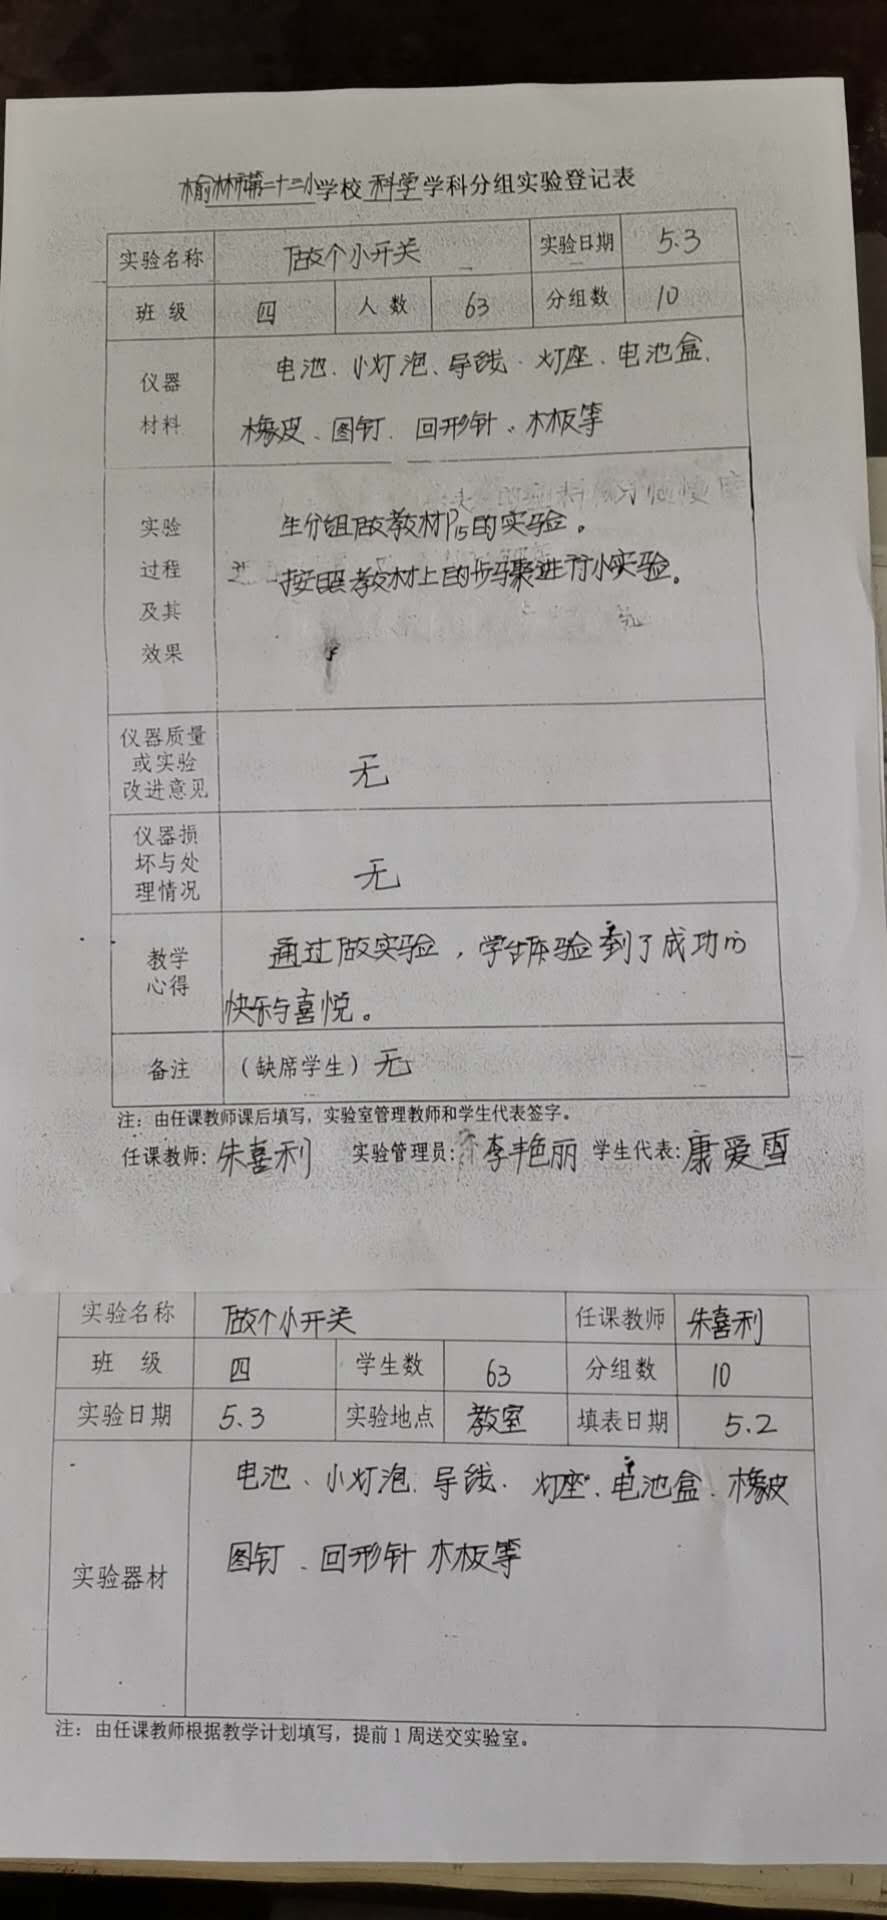 榆林市第二十三小学校 科学 学科分组实验登记表
实验名称 做个小开关 实验日期 5.3
班级 四 人数 63 分组数 10
仪器材料
电池、小灯泡、导线、灯座、电池盒、
橡皮、图钉、回形针、木板等
实验过程及其效果
生分组做教材P15的实验。
按照教材上的步骤进行小实验。
仪器质量或实验改进意见 无
仪器损坏与处理情况 无
教学心得
通过做实验，学生体验到了成功的
快乐与喜悦。
备注 （缺席学生）无
注：由任课教师课后填写，实验室管理教师和学生代表签字。
任课教师：朱喜利 实验管理员：李艳丽 学生代表：康爱雪
实验名称 做个小开关 任课教师 朱喜利
班级 四 学生数 63 分组数 10
实验日期 5.3 实验地点 教室 填表日期 5.2
实验器材
电池、小灯泡、导线、灯座、电池盒、橡皮
图钉、回形针 木板等
注：由任课教师根据教学计划填写，提前1周送交实验室。